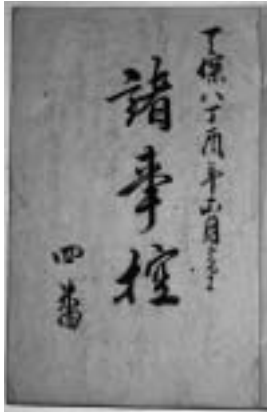 天保八丁酉年
諸事控
四番